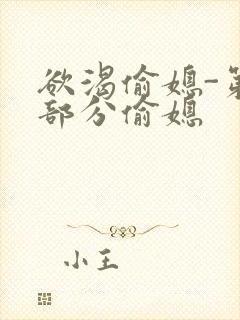 欲渴偷媳-第
部分偷媳
小王